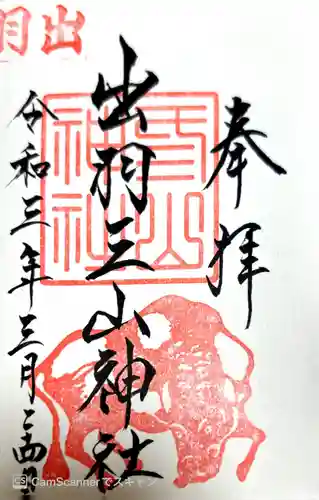 出羽
奉拝
出羽三山神社
令和三年三月二四日
月山神社
CS CamScannerでスキャン